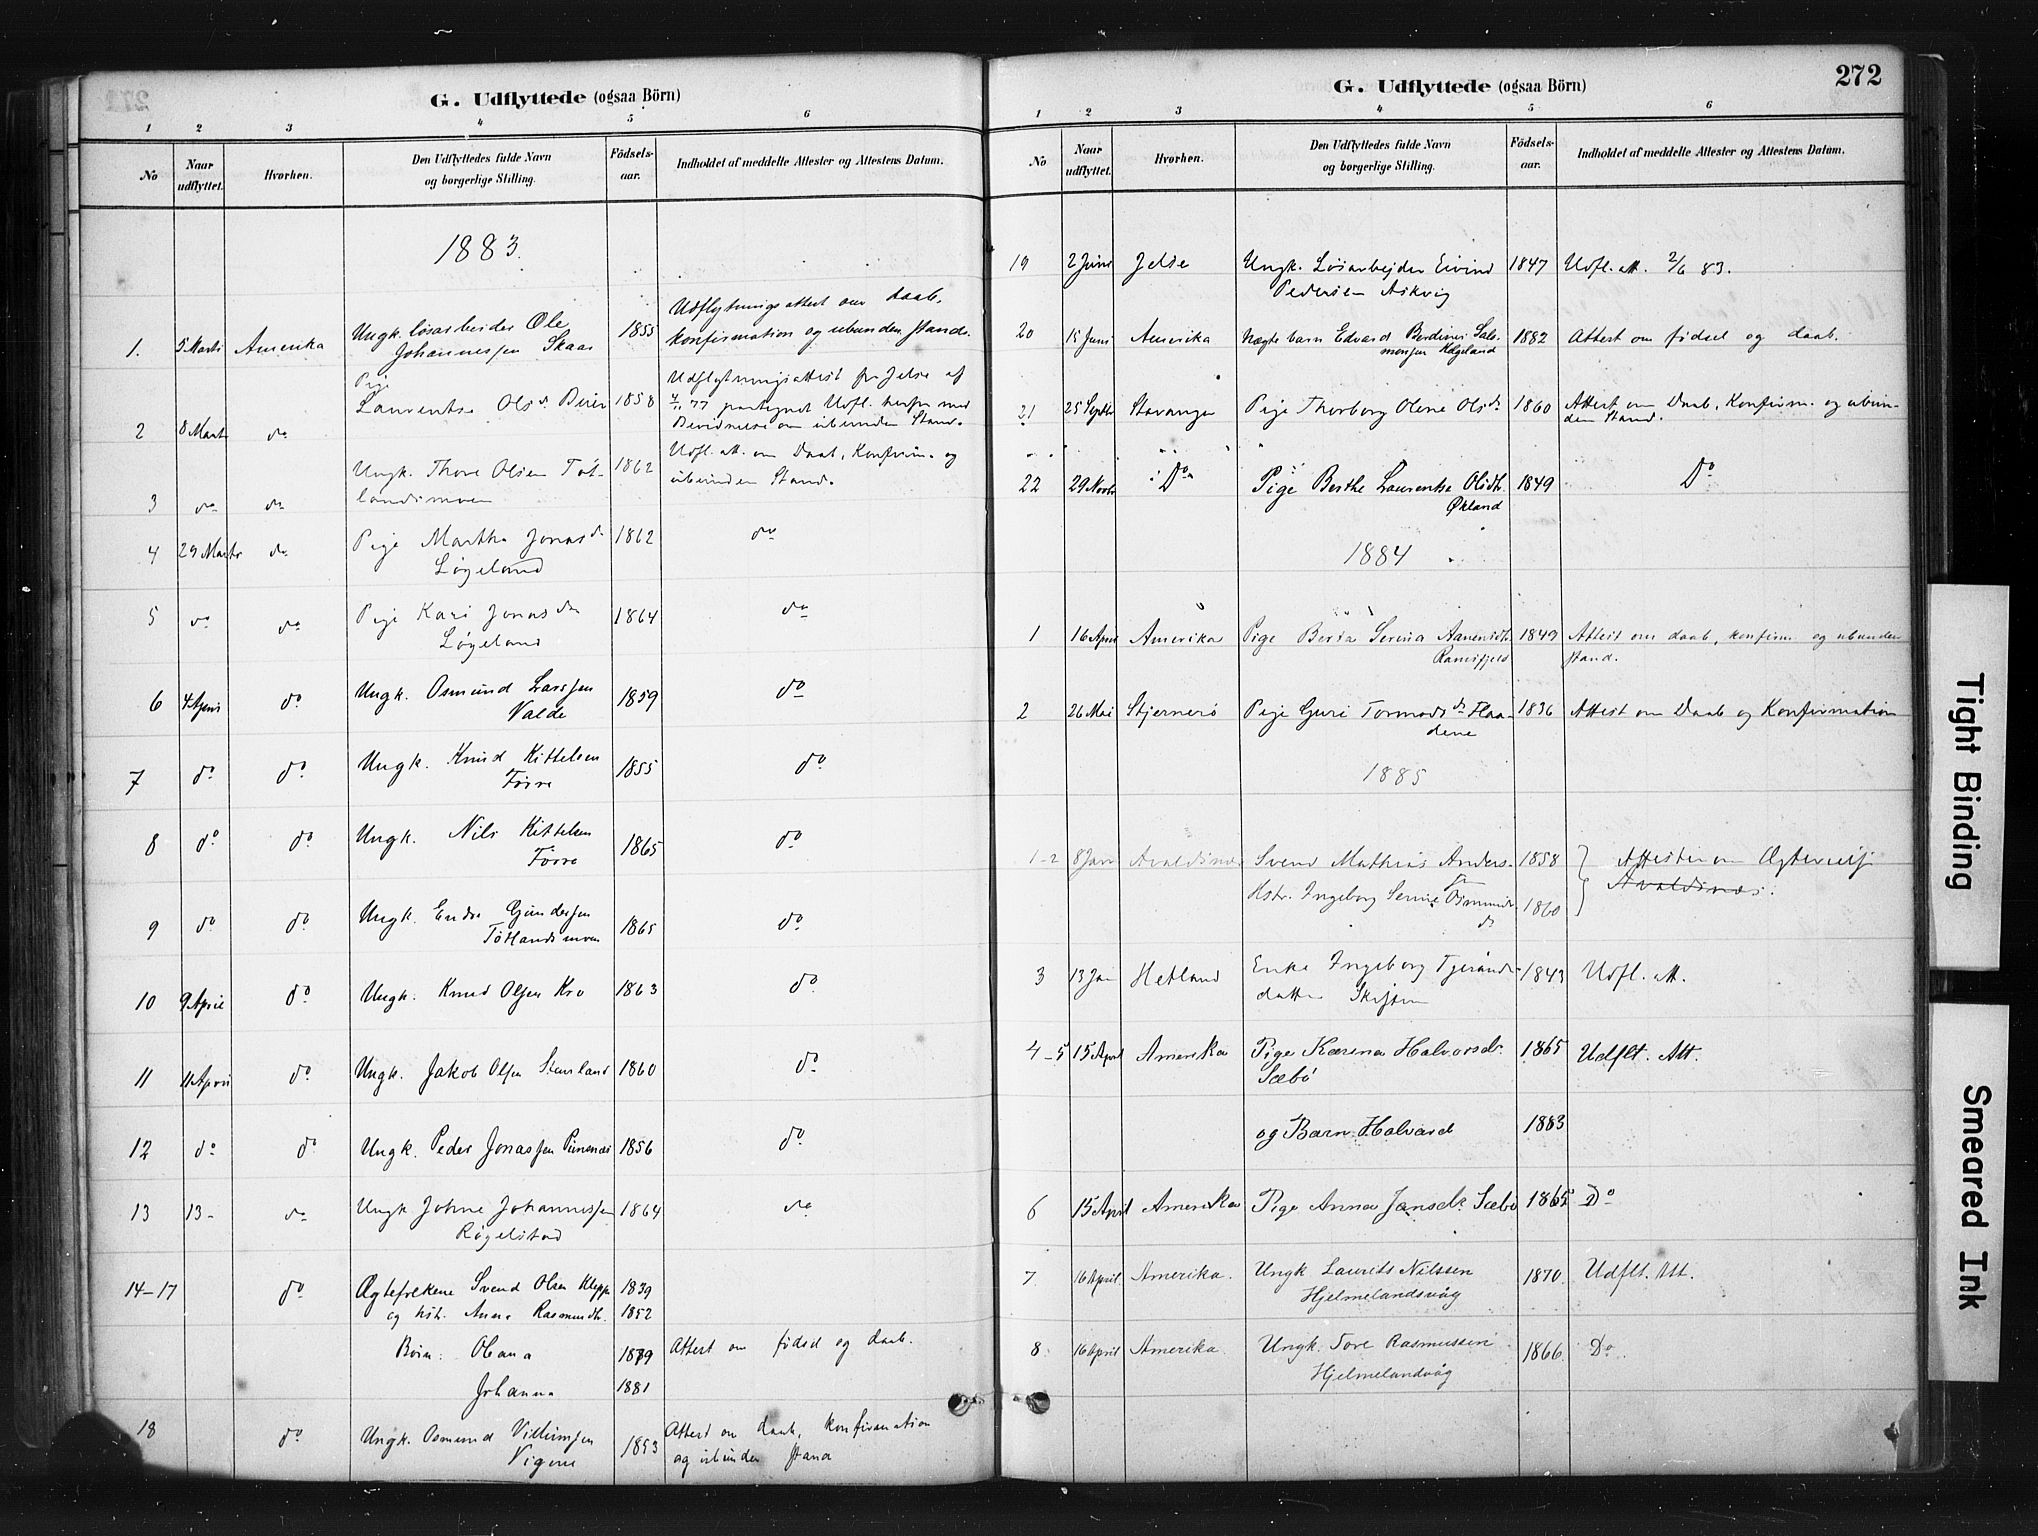 G. Udflyttede (ogsaa Börn)
1 2 3 4 5 6
No Naar udflyttet. Hvorhen. Den Udflyttedes fulde Navn og borgerlige Stilling. Födsels-aar. Indholdet af meddelte Attester og Attestens Datum.
1883.
1. 5 Marts Amerika Ungk. løsarbeider Ole 1855 Udflytningsattest om daab,
Johannessen Skaar konfirmation og ubunden stand.
2 8 Marts do Pige Laurentse Olsdr 1858 Udflytningsattest fra Jelse af
4/11 77 paategnet Udfl. herfra med
Bevidnelse om ubunden Stand.
3 do do Ungk. Thore Olsen Tøt- 1862 Udfl. att. om Daab, Konfirm. og
landsmoen ubunden Stand.
4 29 Marts do Pige Martha Jonasdr 1862 do
Løgeland
5 do do Pige Kari Jonasdr 1864 do
Løgeland
6 4 April do Ungk. Osmund Larssen 1859 do
Valde
7 do do Ungk. Knud Kittelsen 1855 do
Førre
8 do do Ungk. Nils Kittelsen 1865 do
Førre
9 do do Ungk. Endre Gundersen 1865 do
Tøtlandsmoen
10 9 April do Ungk. Knud Olsen Kro 1863 do
11 11 April do Ungk. Jakob Olsen Stensland 1860 do
12 do do Ungk. Peder Jonassen 1856 do
13 13 - do Ungk Johne Johannessen 1864 do
Røgelstad
14-17 do Ægtefolkene Svend Olsen Kleppe 1839
og hstr. Anna Rasmusdtr. 1852
Børn: Oleana 1879 Attest om fødsel og daab.
Johanna 1881
18 do Ungk. Osmund Villumsen 1853 Attest om daab, konfirmation
Vigene og ubunden stand
G. Udflyttede (ogsaa Börn) 272
1 2 3 4 5 6
No Naar udflyttet. Hvorhen. Den Udflyttedes fulde Navn og borgerlige Stilling. Födsels-aar. Indholdet af meddelte Attester og Attestens Datum.
19 2 Juni Jelse Ungk. Løsarbejder Eivind 1847 Udfl. att. 2/6 83.
Pedersen Askvig
20 15 Juni Amerika Uægte barn Edvard Berdines Salo- 1882 Attest om fødsel og daab.
monsen Helgeland
21 25 Septbr Stavanger Pige Thorborg Olene Olsdr 1860 Attest om Daab, Konfirm. og ubun-
den Stand.
22 29 Novbr Do Pige Berthe Laurentse Olsdtr. 1849 Do
Økland
1884
1 16 April Amerika Pige Berta Serina Aanensdtr 1849 Attest om daab, konfirm og ubunden
Ramsfjeld stand.
2 26 Mai Stjernerö Pige Guri Tormodsdr Flaa- 1836 Attest om Daab og Konfirmation
dene
1885
1-2 8 Jan Avaldsnes Svend Mathias Anders- 1858 Attester om Ægtevielse
sen Avaldsnæs.
Hstr. Ingeborg Serine Osmunds- 1860
dr
3 13 Jan Hetland Enke Ingeborg Tjerands- 1843 Udfl. att.
datter Skiftun
4-5 15 April Amerika Pige Karina Halvorsdr. 1865 Udflt. Att.
Sæbö
og Barn Halvard 1883
6 15 April Amerika Pige Anna Jansdr. Sæbö 1865 Do
7 16 April Amerika. Ungk Laurits Nilssen 1870. Udflt. Att.
Hjelmelandsvåg
8 16 April Amerika. Ungk. Tore Rasmussen 1866. Do.
Hjelmelandvåg
Tight Binding
Smeared Ink